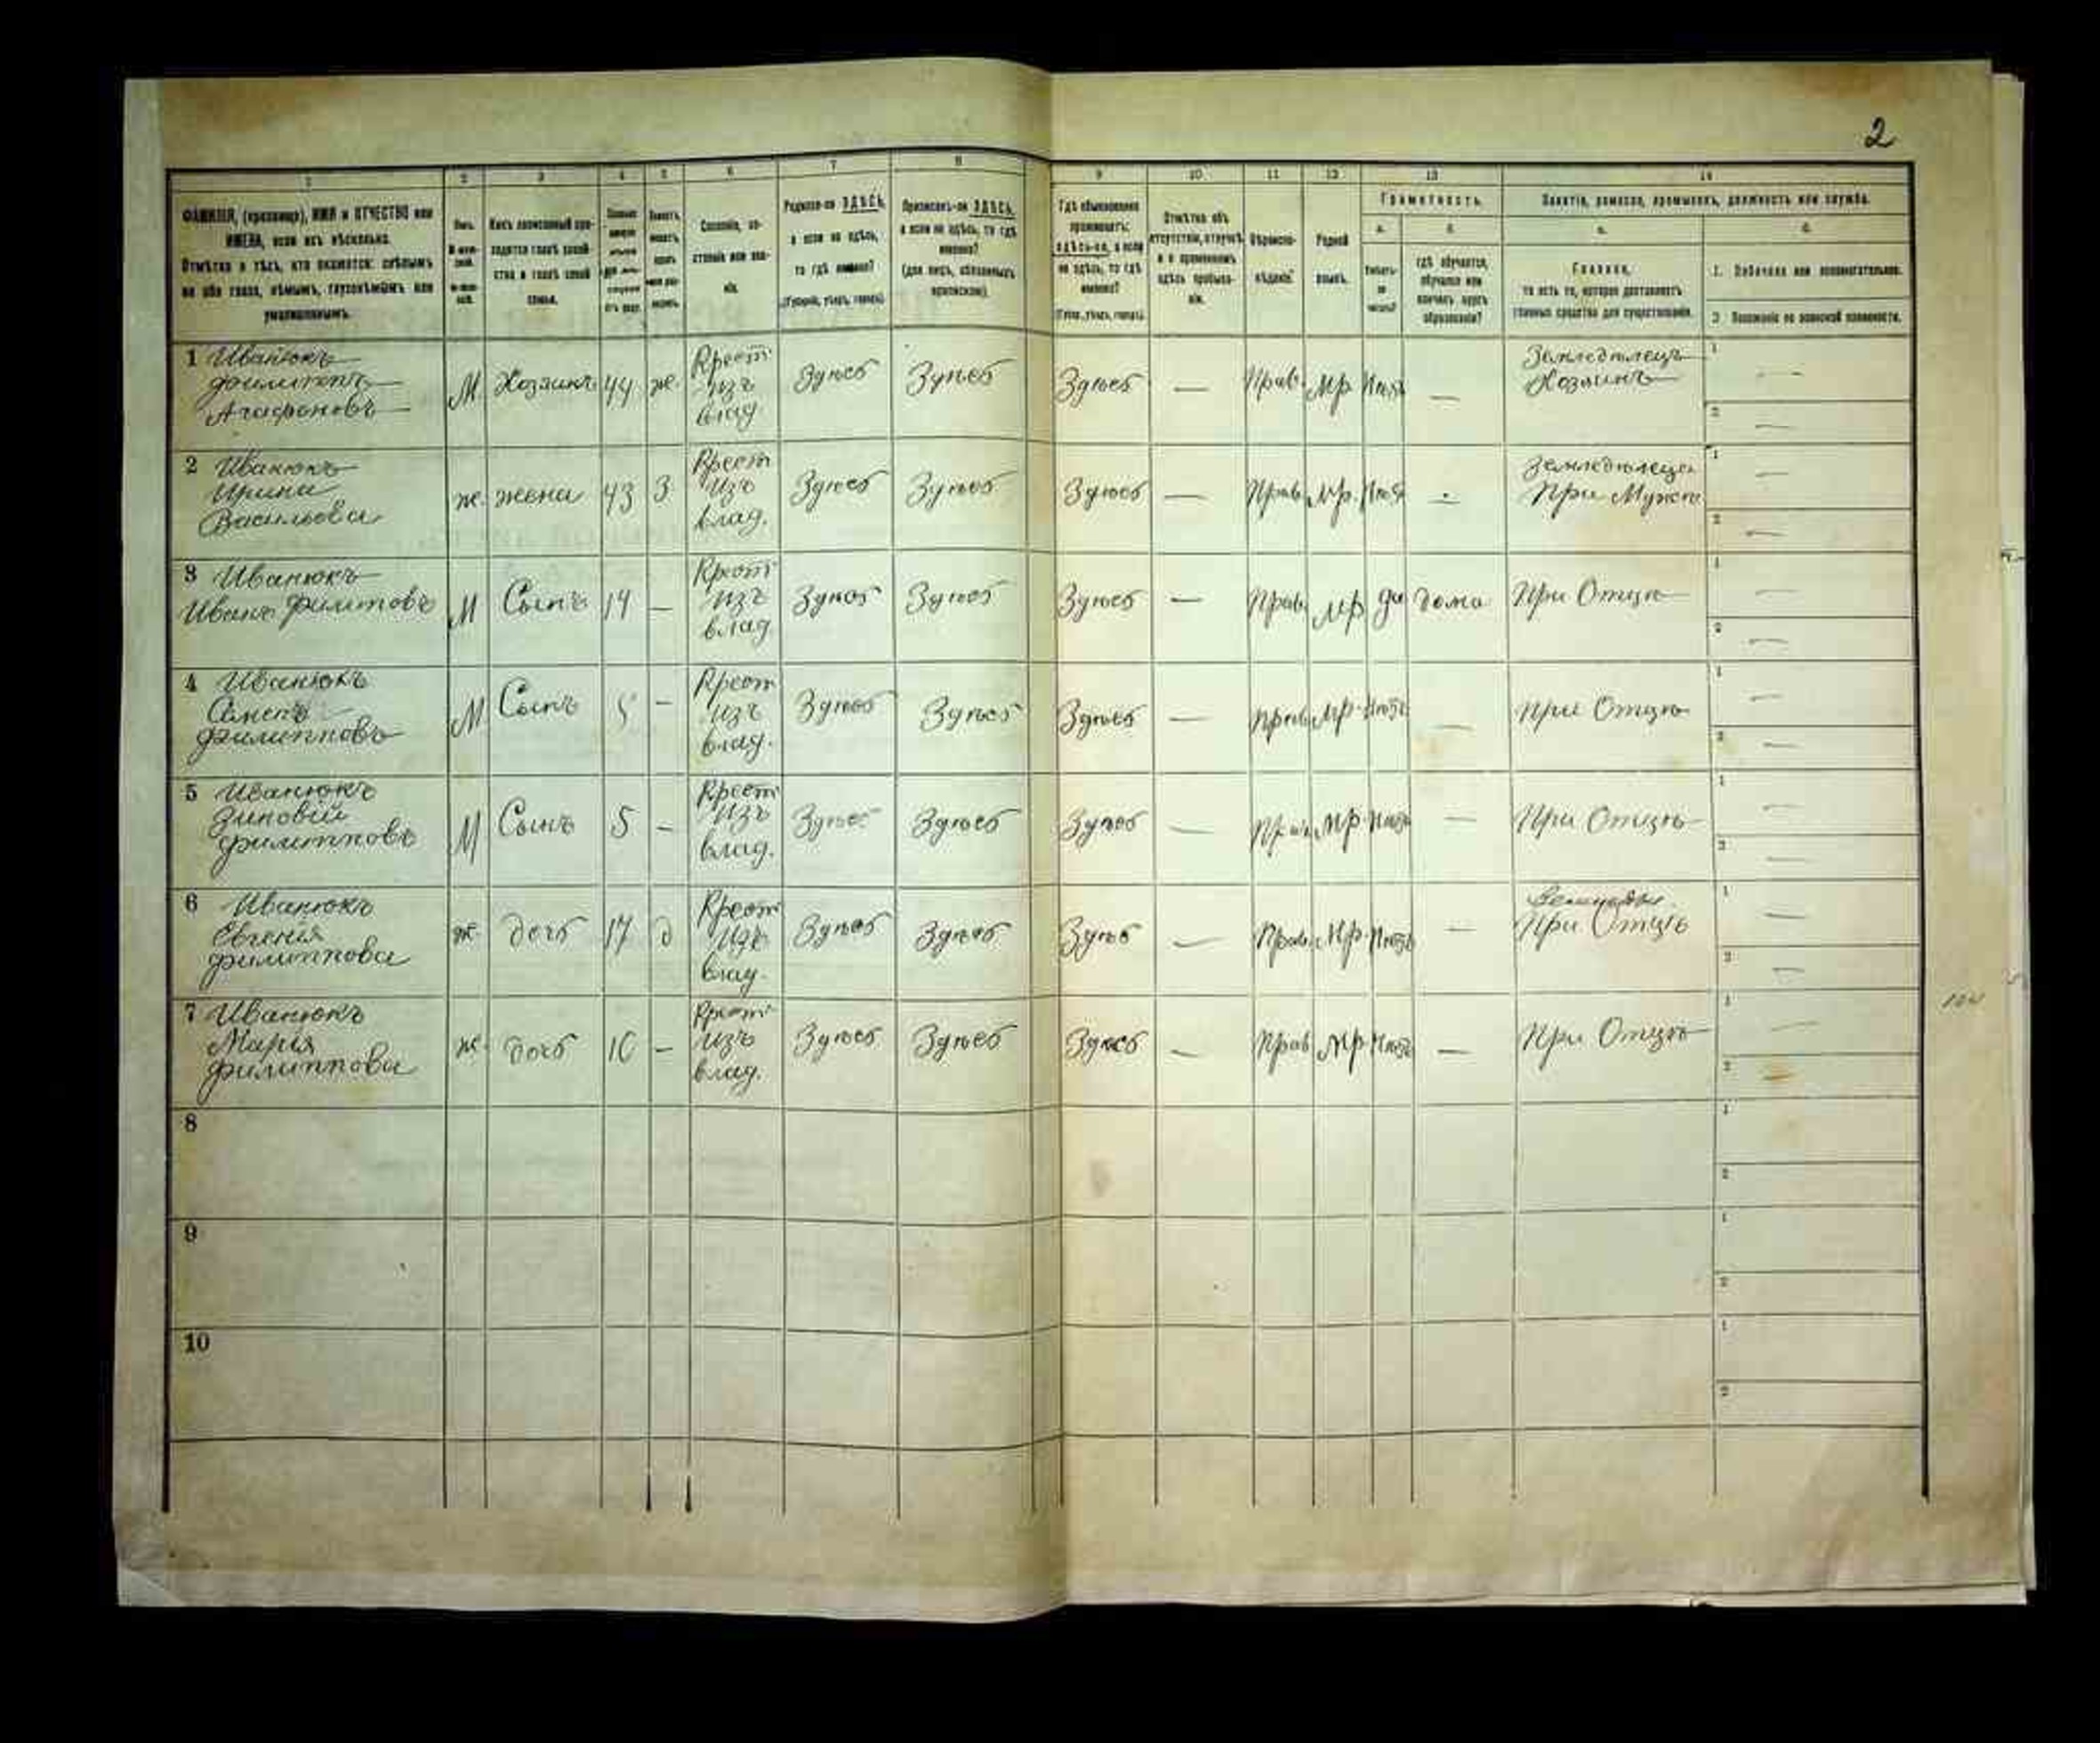 2
1 2 3 4 5 6 7 8 9 10 11 12 13 14
ФАМИЛІЯ, (прозвище), ИМЯ и ОТЧЕСТВО или
ИМЕНА, если ихъ нѣсколько.
Отмѣтка о тѣхъ, кто окажется: слѣпымъ
на оба глаза, нѣмымъ, глухонѣмымъ или
умалишеннымъ.
Родился-ли ЗДѢСЬ,
а если не здѣсь,
то гдѣ именно?
(Губернія, уѣздъ, городъ).
Приписанъ-ли ЗДѢСЬ,
а если не здѣсь, то гдѣ
именно?
(для лицъ, обязанныхъ
припискою).
Гдѣ обыкновенно
проживаетъ:
здѣсь-ли, а если
не здѣсь, то гдѣ
именно?
(Губер., уѣздъ, городъ).
Отмѣтка объ
отсутствіи, отлучкѣ
и о временномъ
здѣсь пребыва-
ніи.
Вѣроиспо-
вѣданіе.
Родной
языкъ.
Грамотность.
а. б.
гдѣ обучается,
обучался или
кончилъ курсъ
образованія?
Занятіе, ремесло, промыселъ, должность или служба.
а. б.
Главное,
то есть то, которое доставляетъ
главныя средства для существованія.
1. Побочное или вспомогательное.
2. Положеніе по воинской повинности.
1 Иванюкъ
Филиппъ
Агафоновъ
М. Хозяинъ 44 ж. Крест.
изъ
влад. Здѣсь Здѣсь Здѣсь — Прав. Мр. Нѣтъ — Земледѣлецъ
Хозяинъ 1 —
2 —
2 Иванюкъ
Ирина
Васильева
ж. жена 43 З. Крест
изъ
влад. Здѣсь Здѣсь Здѣсь — Прав. Мр. Нѣтъ —
При Мужѣ 1 —
2 —
3 Иванюкъ
Иванъ Филиповъ
М Сынъ 14 — Крест
изъ
влад. Здѣсь Здѣсь Здѣсь — Прав. Мр да дома При Отцѣ 1 —
2 —
4 Иванюкъ
Семенъ
Филипповъ
М Сынъ — Крест
изъ
влад. Здѣсь Здѣсь Здѣсь — Прав. Мр. Нѣтъ — При Отцѣ 1 —
2 —
5 Иванюкъ
Зиновій
Филипповъ
М Сынъ 5 — Крест
изъ
влад. Здѣсь Здѣсь Здѣсь — Прав. Мр. Нѣтъ — При Отцѣ 1 —
2 —
6 Иванюкъ
Евгенія
Филиппова
ж. дочь 17 д Крест
изъ
влад. Здѣсь Здѣсь Здѣсь — Прав. Мр. Нѣтъ —
При Отцѣ 1 —
2 —
7 Иванюкъ
Марья
Филиппова
ж. дочь — Крест
изъ
влад. Здѣсь Здѣсь Здѣсь — Прав. Мр. Нѣтъ — При Отцѣ 1 —
2 —
8 1
2
9 1
2
10 1
2